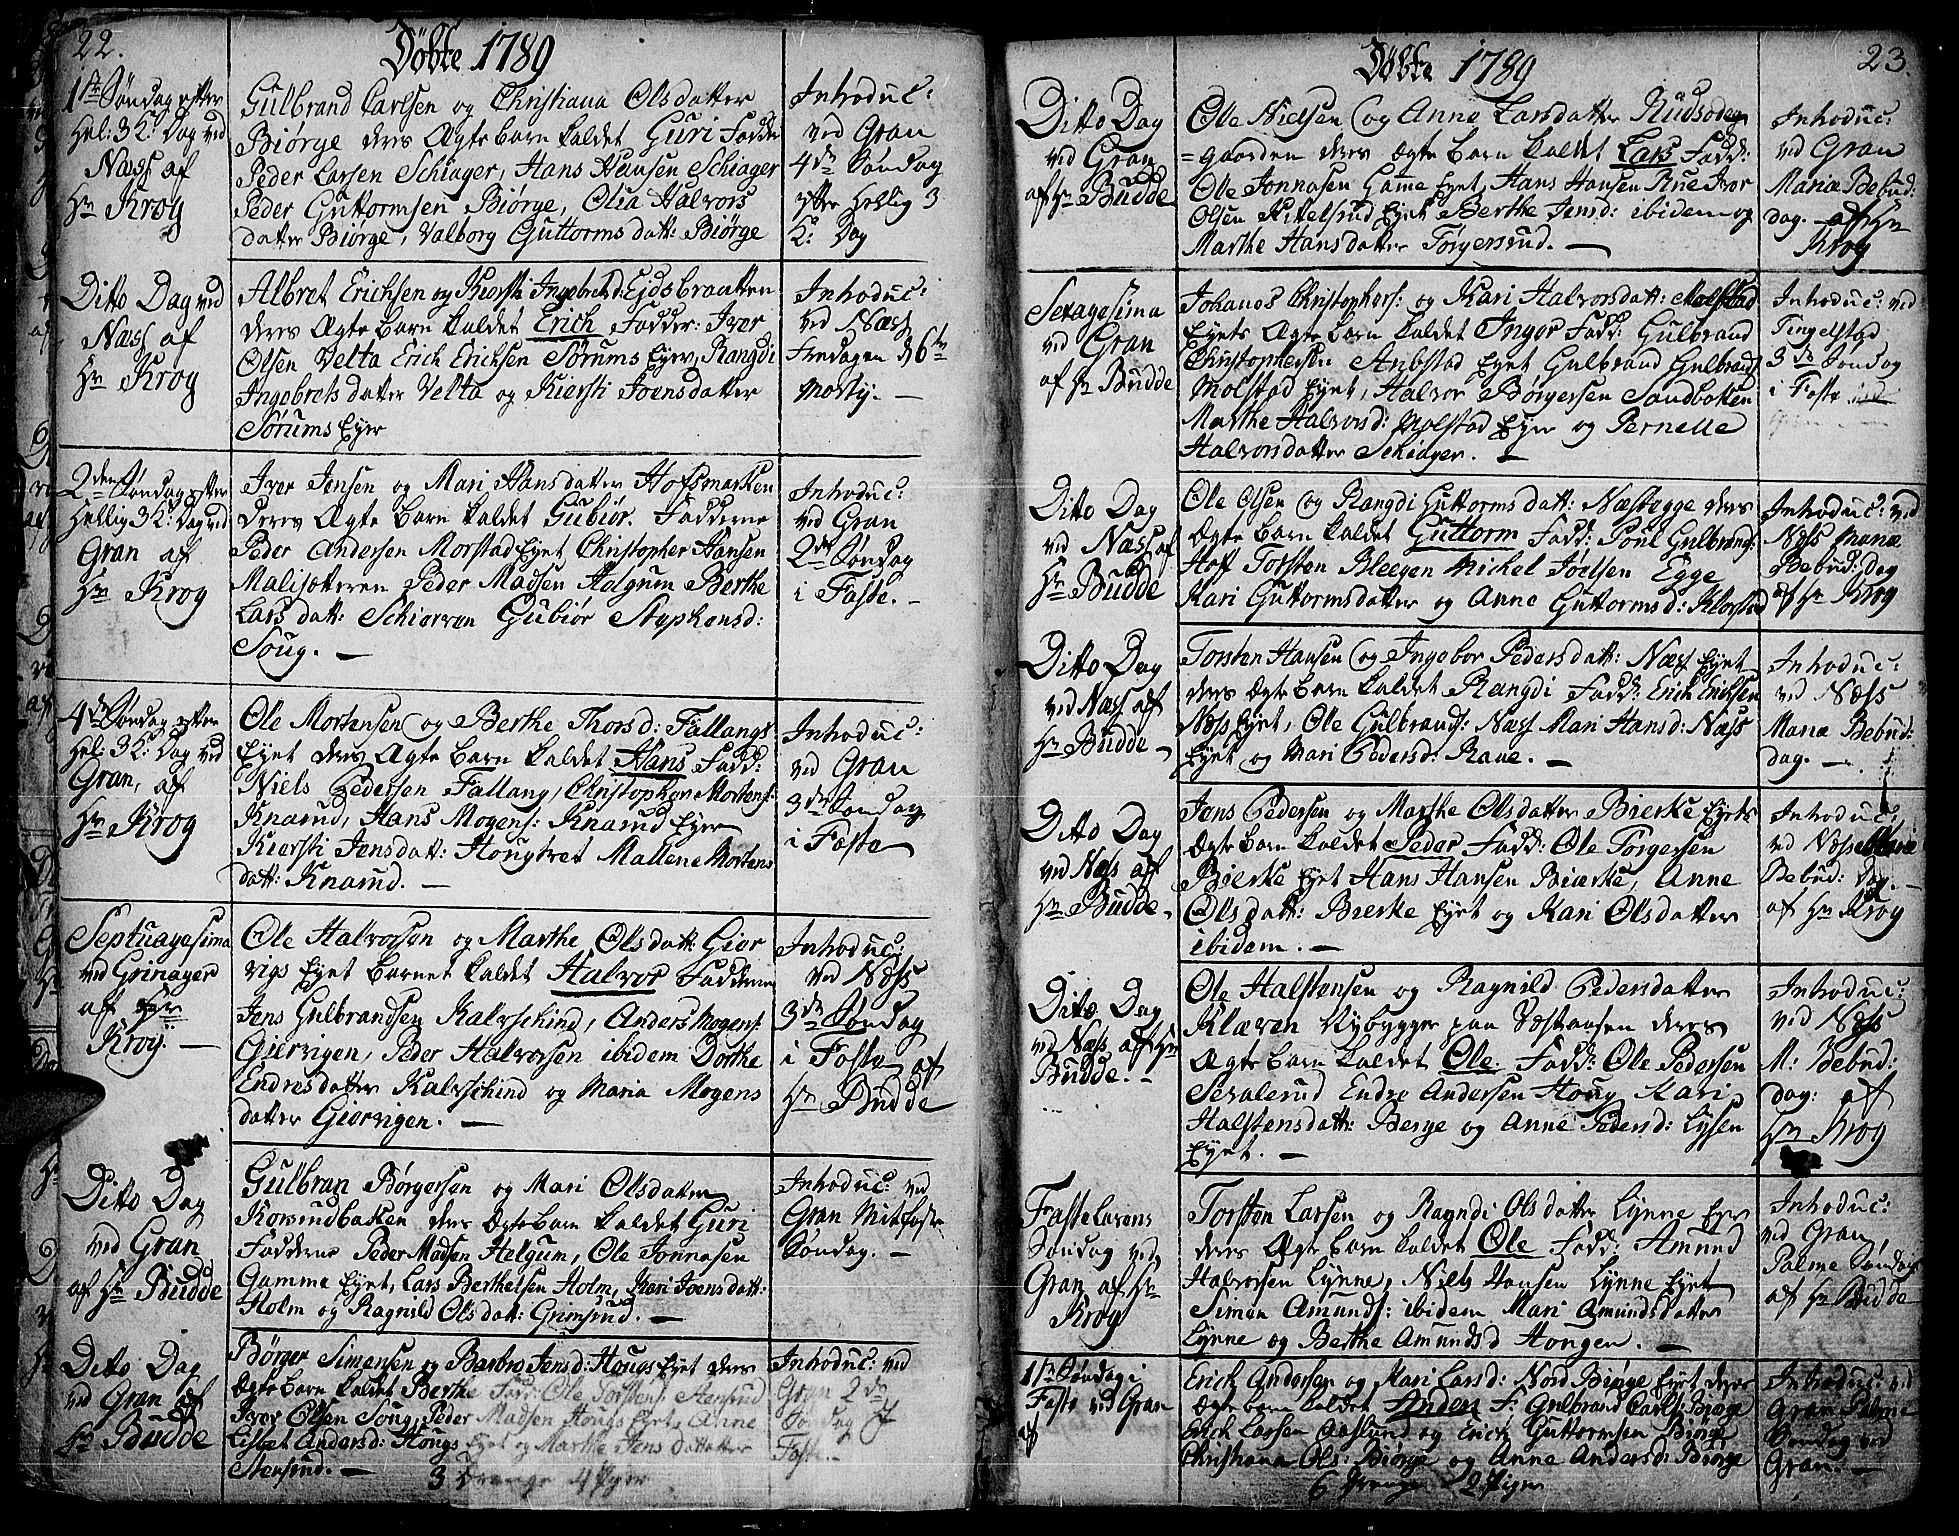 22.
Döbte 1789
1ste Søndag efter
Hel: 3 K: Dag ved
Næss af
Hr Krog
Gulbrand Carlsen og Christiana Olsdatter
Biørge deres Ægte barn kaldet Guri Fadde
Peder Larsen Schiager, Hans Hansen Schiager
Peder Guttormsen Biørge, Olia Halvors
datter Biørge, Valborg Guttorms datt: Biørge
Introduc:
ved Gran
4de Søndag
efter Hellig 3
K: Dag
Ditto Dag ved
Næss af
Hr Krog
Albret Erichsen og Kiersti Ingebretsd: Egdsbraatten
deres Ægte barn kaldet Erich Fadder: Iver
Olsen Velta Erich Erichsen Sørums Eyer, Rangdi
Ingebrets datter Velta og Kiersti Joensdatter
Sørums Eyer
Introduc:
ved Næss
Fredagen
2den Søndag efter
Hellig 3 K: Dag ved
Gran af
Hr Krog
Iver Jensen og Mari Hansdatter Hofsmarken
deres Ægte barn kaldet Gubiør. Fadderne
Peder Andersen Morstad Eyet Christopher Hansen
Malisæteren Peder Madsen Helgum Berthe
Lars datt: Schiervan Gubiør Stephensd:
Soug. —
Introduc:
ved Gran
2de Søndag
i Faste. —
4de Søndag efter
Hel: 3 K: Dag ved
Gran, af
Hr Krog
Ole Mortensen og Berthe Thorsd: Fallangs
Eyet deres Ægte barn kaldet Hans Fadd:
Niels Pedersen Fallang, Christopher Mortens:
Knarud, Hans Mogens: Knarud Eyer
Kiersti Jensdatt: Hougtvet Mallene Mortens
datt: Knarud. —
Introduc:
ved Gran
3de Søndag
i Faste
Septuagesima
ved Grinager
af Hr
Krog. —
Ole Halvorsen og Marthe Olsdatt: Gior
vigs Eyet barnet kaldet Halvor Fadderne
Jens Gulbrandsen Kalvschind, Anders Mogens:
Giervigen, Peder Halvorsen ibidem Dorthe
Endresdatter Kalvschind og Maria Mogens
datter Giorvigen. —
Introduc:
ved Næss
3de Søndag
i Faste, af
Hr Budde
Ditto Dag
ved Gran
af Hr Budde
Gulbran Børgersen og Mari Olsdatter
Korsrudbaken deres Ægte barn kaldet Guri
Fadderne Peder Madsen Helgum, Ole Jonnasen
Gamme Eyet, Lars Berthelsen Holm, Kari Joensdatt:
Holm og Ragnild Olsdatt: Grimsrud. —
Introduc: ved
Gran Mitfaste
Søndag. —
Ditto Dag
ved Gran af
Hr Budde
Børger Simensen og Barbro Jensd: Hougs Eyet deres
Ægte barn kaldet Berthe Fadd: Ole Torstens: Stensrud
Iver Olsen Soug, Peder Madsen Hougs Eyet, Anne
Lisbet Andersd: Hougs Eyet og Marthe Jens datter
Stensrud. —
3 Drenge 4 Piger
Introduc: ved
Gran 2de
Søndag i
Faste.
23.
Döbte 1789
Ditto Dag
ved Gran
af Hr Budde
Ole Nielsen og Anne Larsdatter Rudsødegaarden
=gaarden deres Ægte barn kaldet Lars Fadd:
Ole Jonnasen Game Eyet, Hans Hansen Rue Iver
Olsen Kitelsrud Eyet Berthe Jensd: ibidem og
Marthe Hansdatter Torgersrud. —
Introduc:
ved Gran
Mariæ Bebud:
dag. af Hr
Krog
Sexagesima
ved Gran
af Hr Budde
Johanes Christophers: og Kari Halvorsdatt: Molstad
Eyets Ægte barn kaldet Inger Fadd: Gulbrand
Christophersen Anbstad Eyet Gulbrand Gulbrands
Molstad Eyet, Halvor Børgersen Sandbaken
Marthe Halvorsd: Molstad Eyer og Pernelle
Halvorsdatter Schiager.
Introduc: ved
Tingelstad
3de Søndag
i Faste
Ditto Dag
ved Næss af
Hr Budde
Ole Olsen og Rangdi Guttormsdatt: Næsbegge deres
Ægte barn kaldet Guttorm Fadd: Poul Gulbrands:
Hof Torsten Bleegen Michel Joelsen Egge
Kari Guttormsdatter og Anne Guttormsd: Klæstad
Introduc: ved
Næss Mariæ
Bebud: dag
af Hr Krog
Ditto Dag
ved Næss af
Hr Budde. —
Torsten Hansen og Ingebor Pedersdatt: Næss Eyet
deres Ægte barn kaldet Rangdi Fadd: Erich Erichsen
Næss Eyet, Ole Gulbrands: Næss Mari Hansd: Næss
Eyet og Mari Pedersd: Raue. —
Introduc:
ved Næss
Mariæ Bebud:
dag. —
Ditto Dag
ved Næs af
Hr Budde.
Jens Pedersen og Marthe Olsdatter Bierke Eyets
Ægte barn kaldet Peder Fadd: Ole Torgersen
Bierke Eyet Hans Hansen Bierke, Anne
Olsdatt: Bierke Eyet og Kari Olsdatter
ibidem. —
Introduc:
ved Næss Mariæ
Bebud: Dag. —
af Hr Krog
Dito Dag
ved Næss af Hr
Budde. —
Ole Halstensen og Ragnild Pedersdatter
Klæven Nybygger paa Væsthaasen deres
Ægte barn kaldet Ole. Fadd: Ole Pedersen
Sexalerud Endre Andersen Houg Kari
Halstensdatt: Berge og Anne Pedersd: Lysen
Eyet. —
Introduc:
ved Næss
M: Bebud:
dag: af
Hr Krog
Fastelavens
Søndag ved
Gran af Hr
Krog
Torsten Larsen og Rangdi Olsdatter Lynne Eyer
deres Ægte barn kaldet Ole Fadd: Amund
Halvorsen Lynne, Niels Hansen Lynne Eyet
Simen Amunds: ibidem Mari Amundsdatter
Lynne og Berthe Amundsd Hongen. —
Introduc:
ved Gran,
Palme Søndag
af Hr Budde
1ste Søndag i
Faste ved Gran
af
Erich Andersen og Mari Larsd: Nord Biørge Eyet deres
Ægte barn kaldet Anden F: Gulbrand Carls: Biørge
Erich Larsen Aaslund og Erich Guttormsen Biørge
Christiana Ols: Biørge og Anne Andersd: Biørge
6 Drenge 2 Piger
Introduc: ved
Gran Palme
Søndag ved
Gran. —